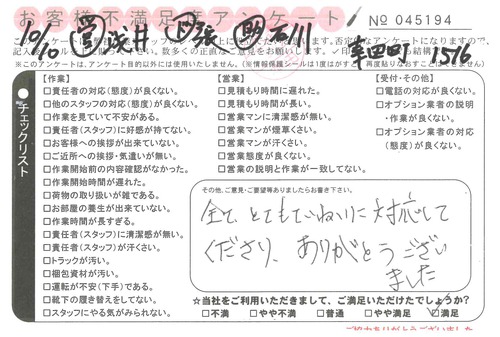 お客様不満足度アンケート
No 045194
10/10 営浅井 張 石川 1516
※このアンケートは、アンケート目的以外には使用いたしません。
チェックリスト
【作業】
□責任者の対応(態度)が良くない。
□他のスタッフの対応(態度)が良くない。
□作業を見ていて不安がある。
□責任者(スタッフ)に好感が持てない。
□お客様への挨拶が出来ていない。
□ご近所への挨拶・気遣いが無い。
□作業開始前の内容確認がなかった。
□作業開始時間が遅れた。
□荷物の取り扱いが雑である。
□お部屋の養生が出来ていない。
□作業時間が長すぎる。
□責任者(スタッフ)に清潔感が無い。
□責任者(スタッフ)が汗くさい。
□トラックが汚い。
□梱包資材が汚い。
□運転が不安(下手)である。
□靴下の履き替えをしてない。
□スタッフにやる気がみられない。
【営業】
□見積もり時間に遅れた。
□見積もり時間が長い。
□営業マンに清潔感が無い。
□営業マンが煙草くさい。
□営業マンが汗くさい。
□営業態度が良くない。
□営業の説明と作業が一致してない。
【受付・その他】
□電話の対応が良くない。
□オプション業者の説明
・作業が良くない。
□オプション業者の対応
(態度)が良くない。
その他、ご意見・ご要望等ありましたらお書き下さい。
全て とてもていねいに対応して
くださり、ありがとうござい
ました
☆当社をご利用いただきまして、ご満足いただけたでしょうか?
□不満 □やや不満 □普通 □やや満足 ☑満足
ご協力ありがとうございました